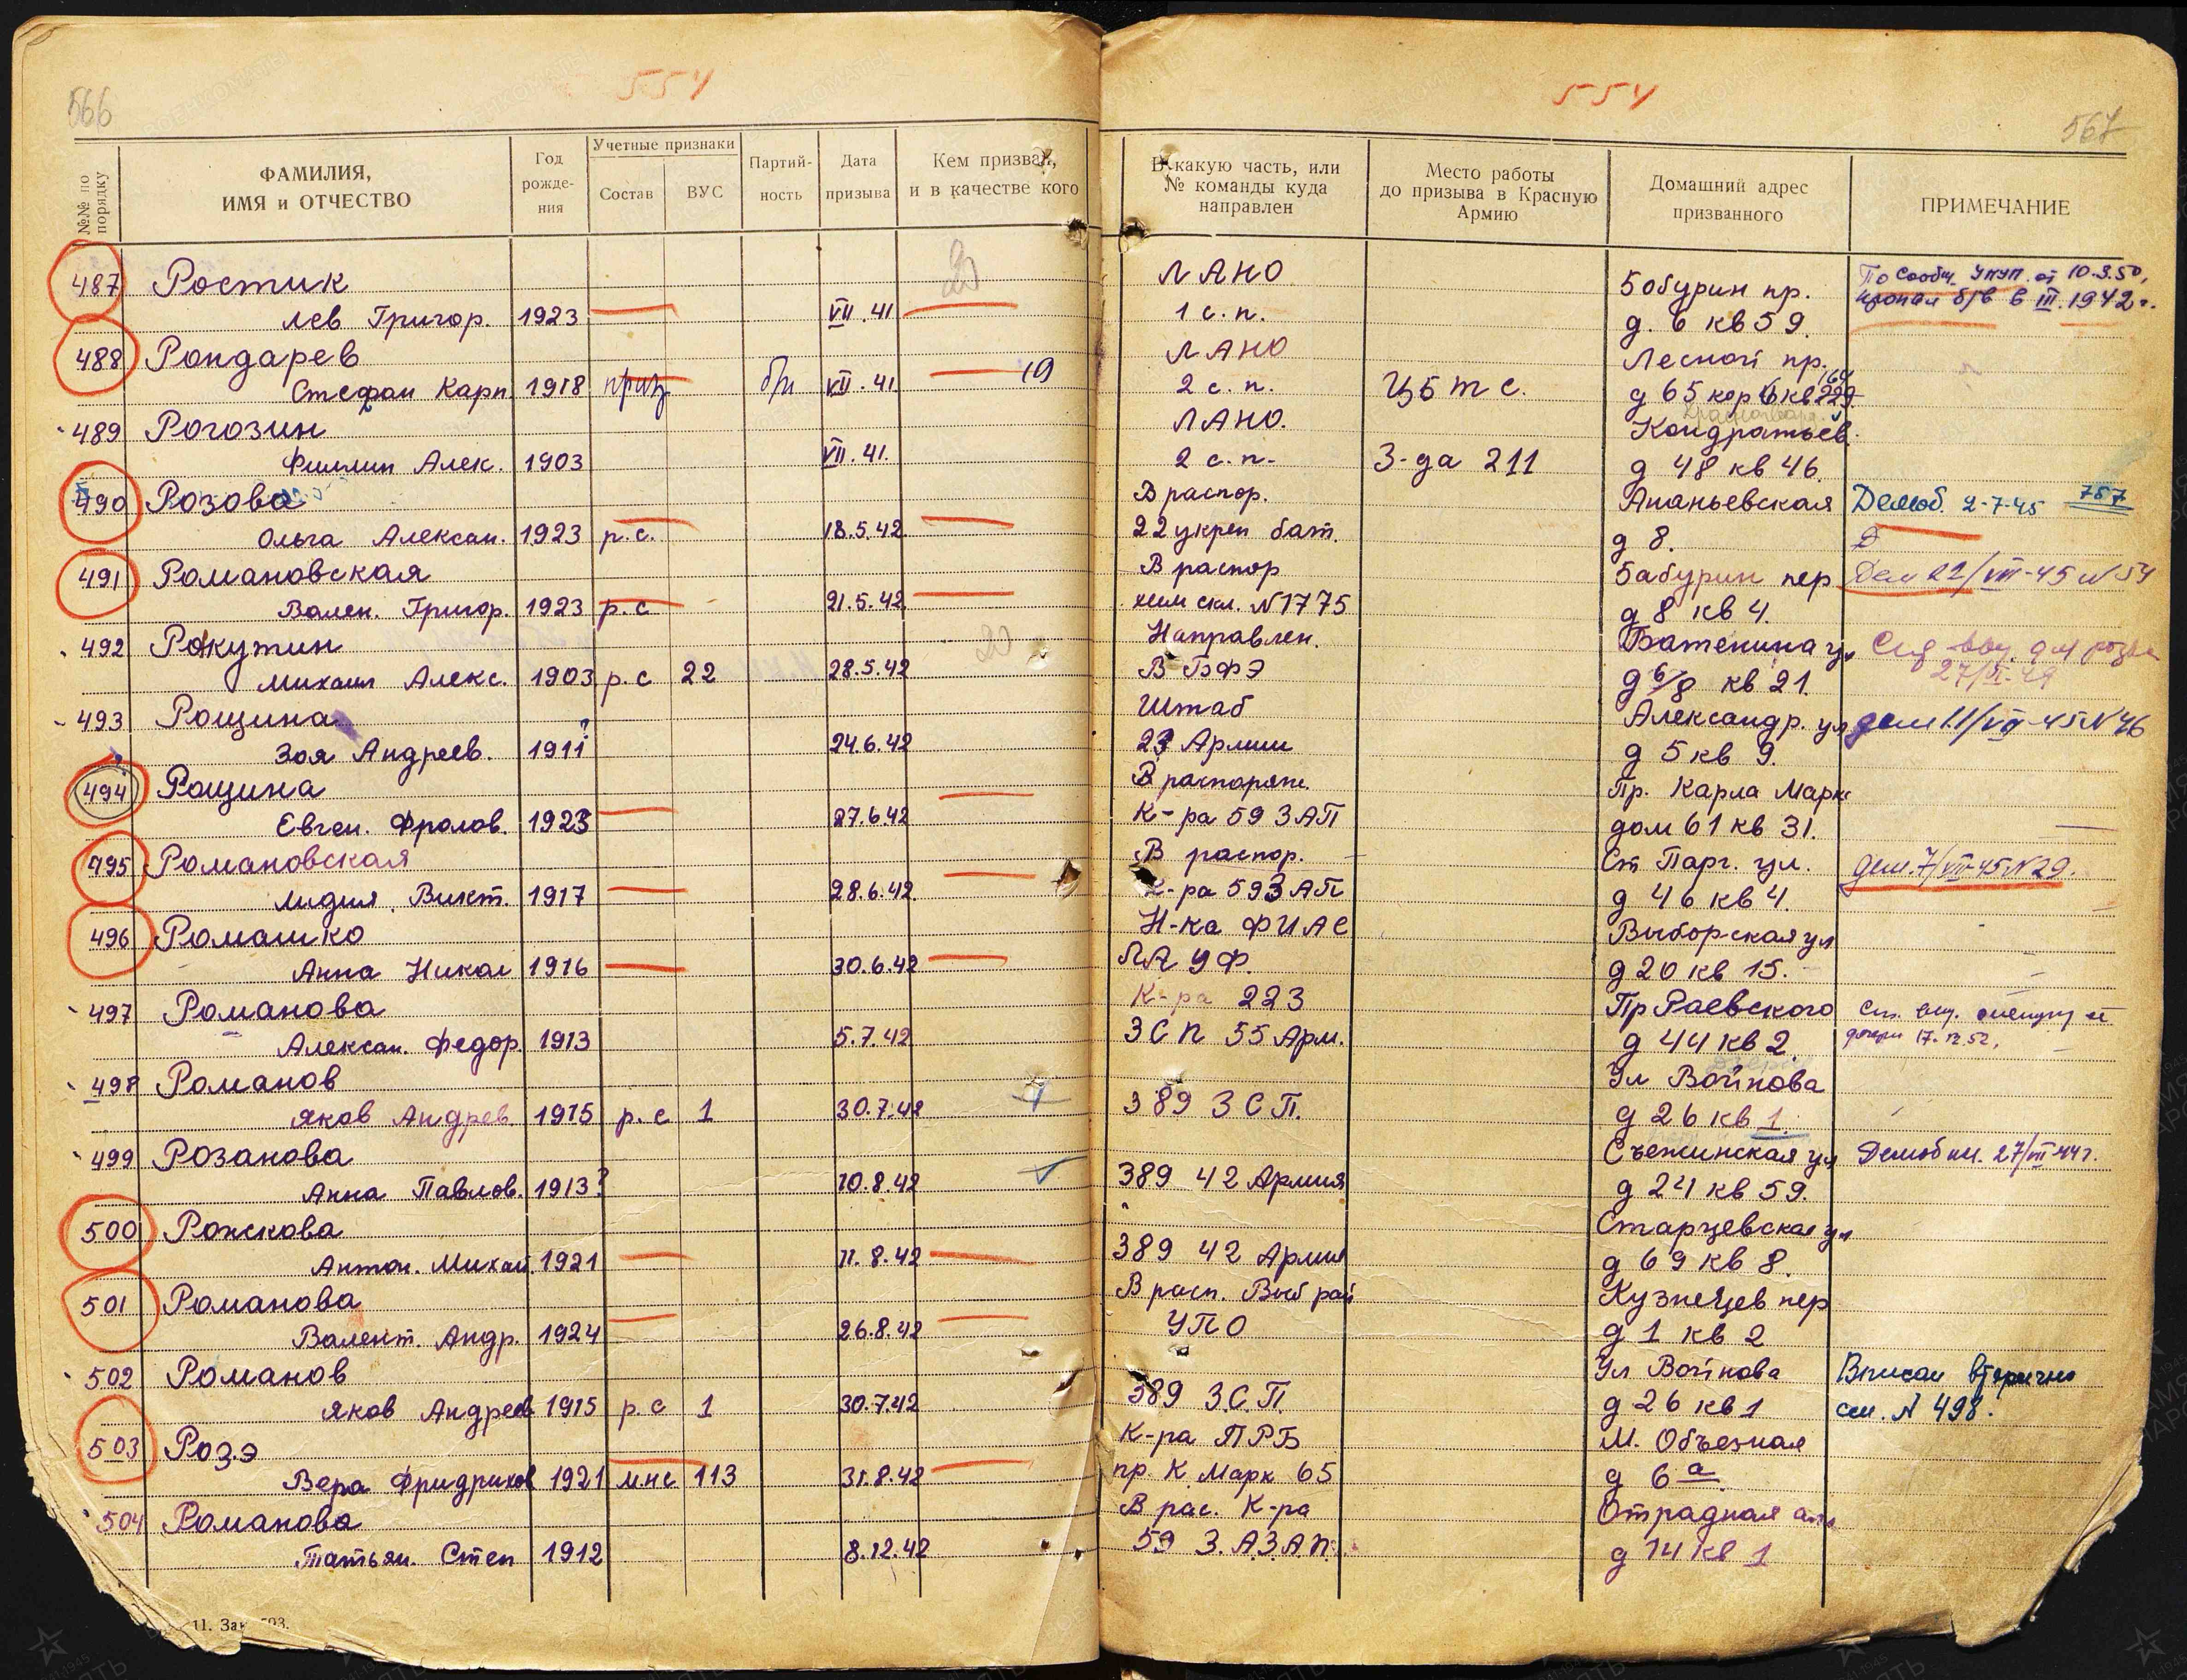 566
554
554
567
№№ по порядку
ФАМИЛИЯ,
ИМЯ и ОТЧЕСТВО
Год
рожде-
ния
Учетные признаки
Состав
ВУС
Партий-
ность
Дата
призыва
Кем призван,
и в качестве кого
В какую часть, или
№ команды куда
направлен
Место работы
до призыва в Красную
Армию
Домашний адрес
призванного
ПРИМЕЧАНИЕ
487 Ростик ЛАНО Бобурин пр. По сообщ. от 10.3.50,
Лев Григор. 1923 VII.41 1 с.п. д. 6 кв 59. пропал б/в в III.1942 г.
488 Рондарев ЛАНО Лесной пр.
Стефан Карп. 1918 б/п VII.41 19 2 с.п. д 65 кор 6 кв
489 Рогозин ЛАНО. Кондратьев.
Филлип Алек. 1903 VII.41. 2 с.п. З-да 211 д 48 кв 46.
490 Розова В распор. Ананьевская Демоб. 2-7-45 757
Ольга Алексан. 1923 р.с. 18.5.42 22 укреп бат. д 8.
491 Романовская В распор Бабурин пер Дем 22/VIII-45 N 54
Вален. Григор. 1923 р.с 21.5.42 хим скл. N 1775 д 8 кв 4.
492 Рокутин 20 Направлен. Батенина ул
Михаил Алекс. 1903 р.с 22 28.5.42 В БФЭ д 6/8 кв 21.
493 Рощина Штаб Александр. ул дем 11/VII-45 N 46
Зоя Андреев. 1911 24.6.42 23 Армии д 5 кв 9.
494 Рощина В распоряж. Пр. Карла Маркс
Евген. Фролов. 1923 27.6.42 К-ра 59 ЗАП дом 61 кв 31.
495 Романовская В распор. Ст Парг. ул. дем. 7/VIII-45 N 29.
Лидия Викт. 1917 28.6.42 К-ра 59 ЗАП д 46 кв 4.
496 Ромашко Н-ка ФИАС Выборская ул
Анна Никол 1916 30.6.42 ПАУФ. д 20 кв 15.
497 Романова К-ра 223 Пр Раевского
Алексан. Федор. 1913 5.7.42 ЗСП 55 Арм. д 44 кв 2.
498 Романов Ул Войнова
Яков Андрев. 1915 р.с 1 30.7.42 389 ЗСП. д 26 кв 1.
499 Розанова Съежинская ул Демоб 27/III 44 г.
Анна Павлов. 1913? 10.8.42 389 42 Армия д 24 кв 59.
500 Рожскова Старцевская ул
Антон. Михай. 1921 11.8.42 389 42 Армия д 69 кв 8.
501 Романова В расп. Выб рай Кузнецев пер
Валент. Андр. 1924 26.8.42 УПО д 1 кв 2
502 Романов Ул Войнова Вписан вторично
Яков Андреев 1915 р.с 1 30.7.42 389 З.С.П. д 26 кв 1 см. N 498.
503 Розэ К-ра ПРБ М. Объезная
Вера Фридрихов 1921 мнс 113 31.8.42 пр. К Марк 65 д 6 а
504 Романова В рас. К-ра Отрадная
Татьян. Степ 1912 8.12.42 59 З.АЗАП. д 14 кв 1